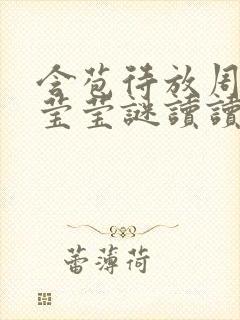 含苞待放周
莹莹謎讀讀
蕾薄荷